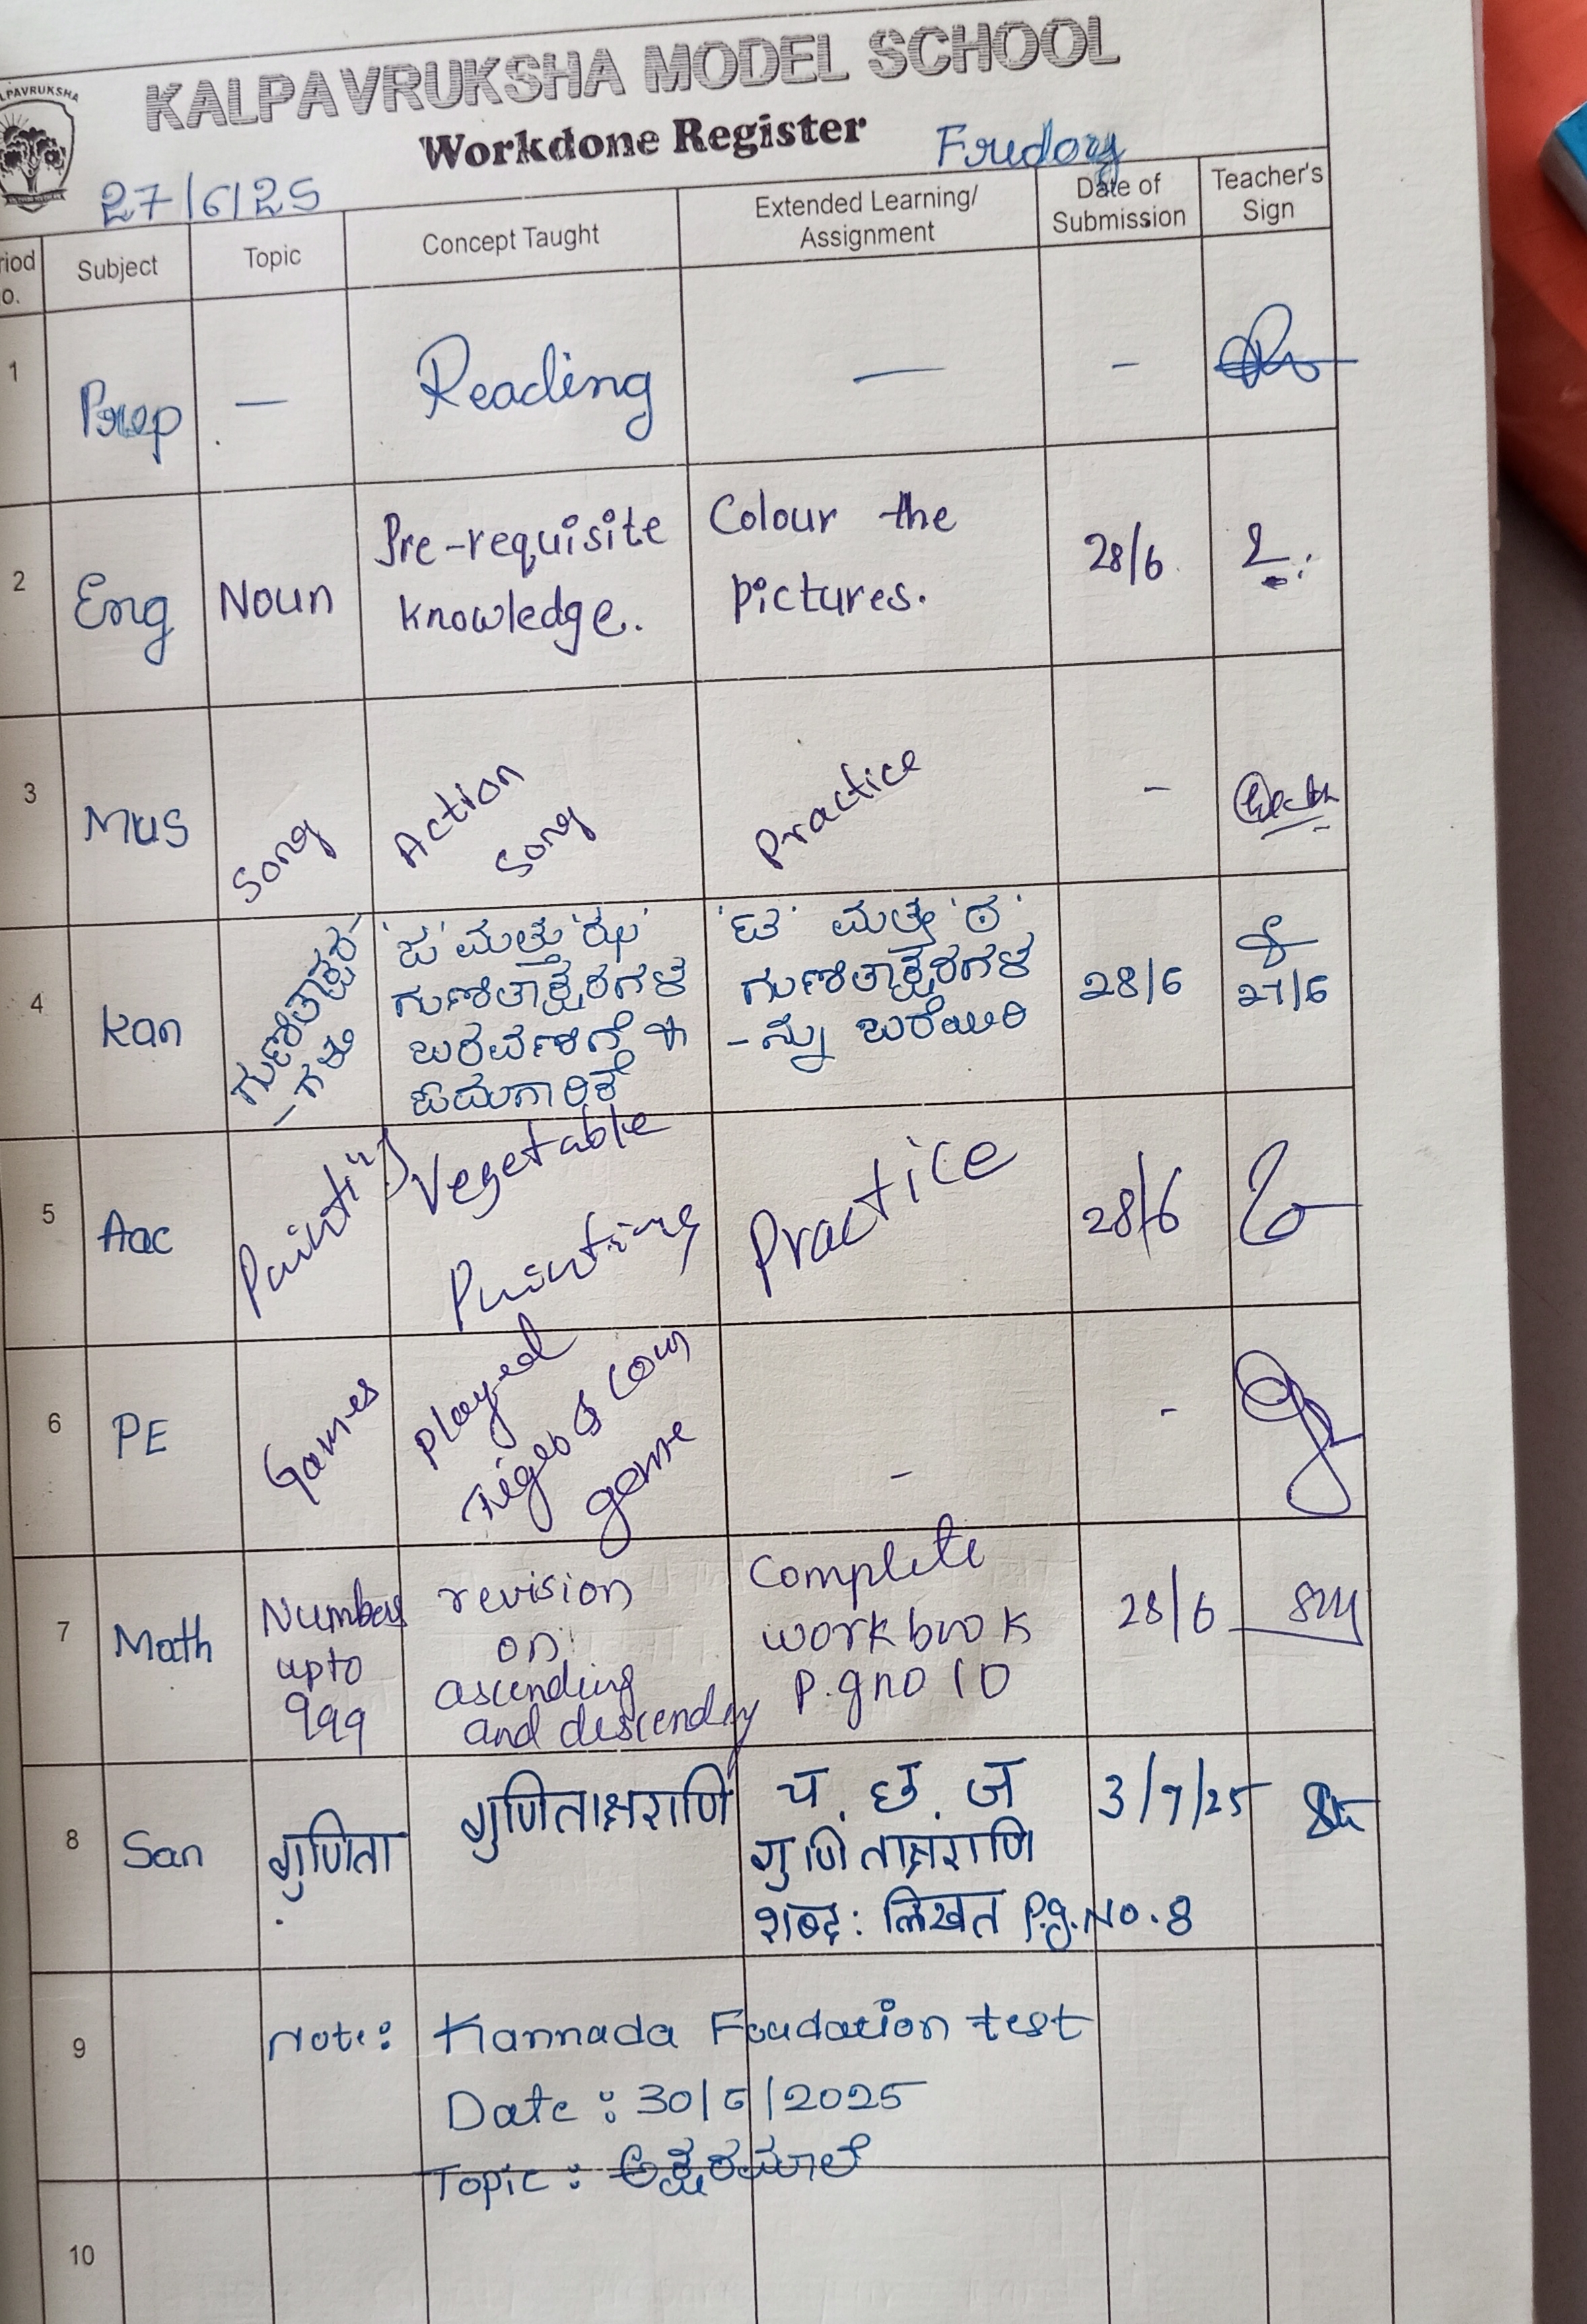 KALPAVRUKSHA
KALPAVRUKSHA MODEL SCHOOL
Workdone Register
27/6/25
Friday
Subject
Topic
Concept Taught
Extended Learning/
Assignment
Date of
Submission
Teacher's
Sign
1
Prep
—
Reading
—
-
2
Eng
Noun
Pre-requisite
knowledge.
Colour the
pictures.
28/6
3
Mus
Song
Action
Song
Practice
-
4
Kan
ಗುಣಿತಾಕ್ಷರ-
-ಗಳು
ಮತ್ತು 'ಝ'
ಗುಣಿತಾಕ್ಷರಗಳ
ಬರವಣಿಗೆ
ಓದುಗಾರಿಕೆ
ಮತ್ತು 'ಠ'
ಗುಣಿತಾಕ್ಷರಗಳ
-ನ್ನು ಬರೆಯಿರಿ
28/6
27/6
5
Aac
Painting
Vegetable
Painting
Practice
28/6
6
PE
Games
Played
game
-
-
7
Math
Numbers
upto
999
revision
on
ascending
and descending
Complete
workbook
P.gno 10
28/6
8
San
गुणिता
गुणिताक्षराणि
च, छ, ज
गुणिताक्षराणि
शब्द: लिखत Pg.No.8
3/7/25
9
Note: Kannada Foudation test
Date: 30/6/2025
Topic: ಅಕ್ಷರಮಾಲೆ
10